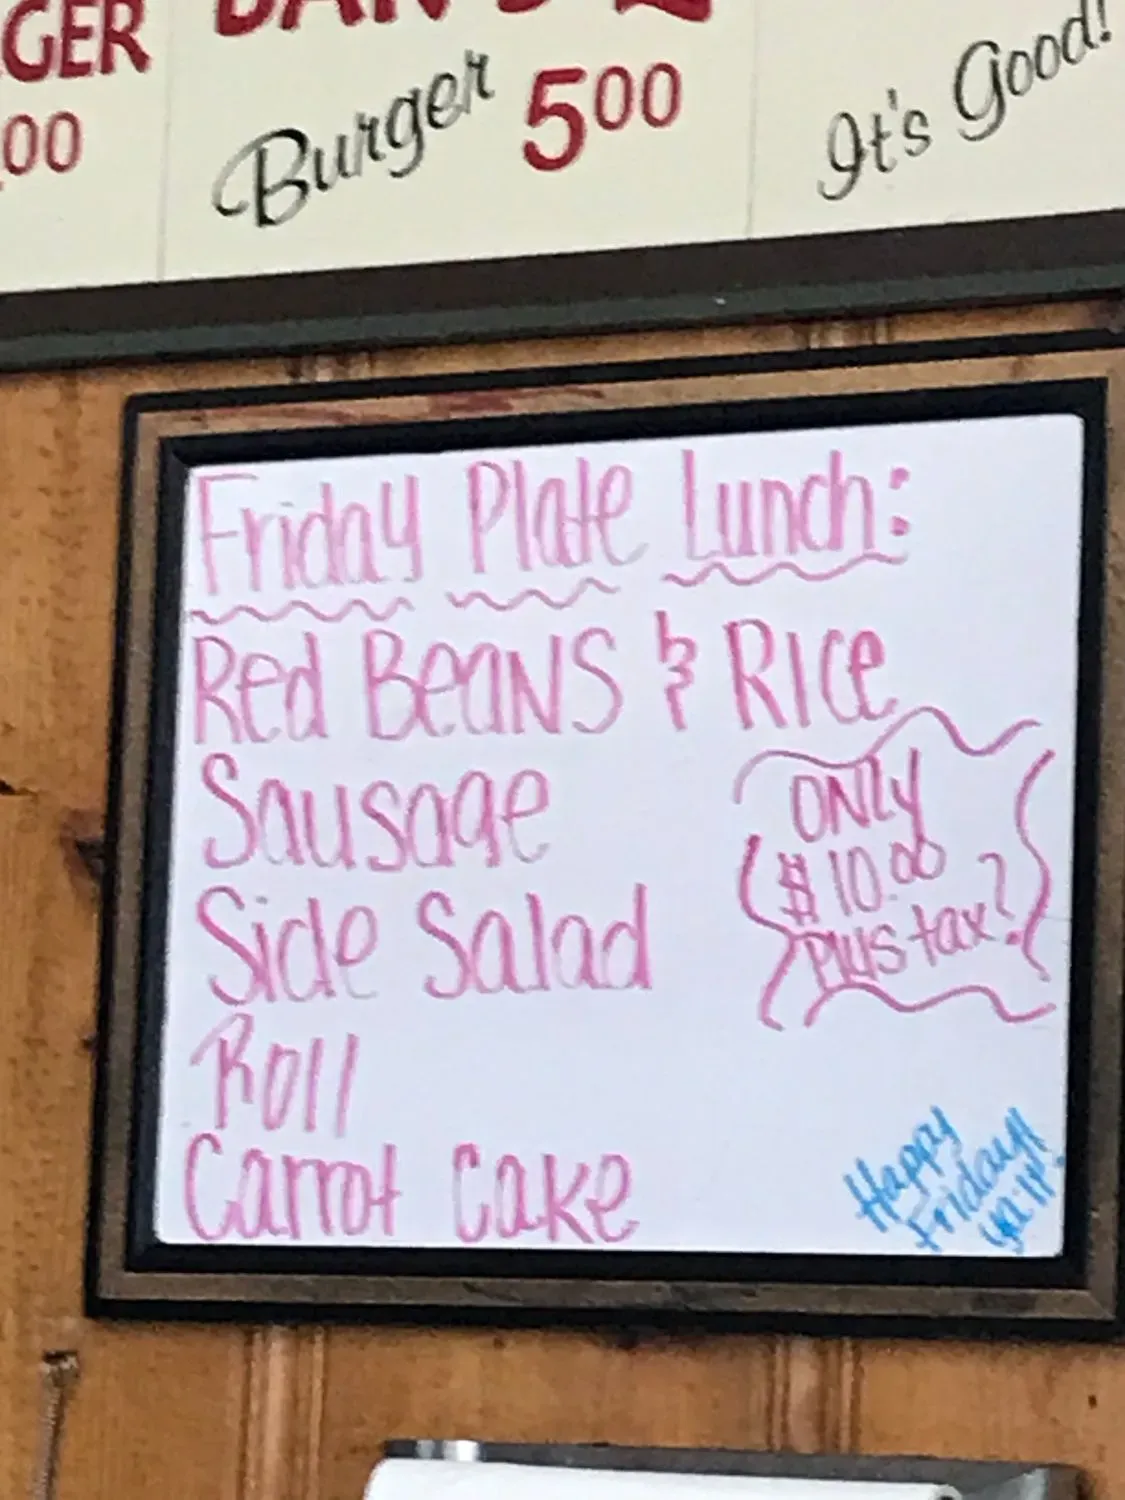 GER
00
Burger 500
It's Good!
Friday Plate Lunch:
Red Beans & Rice
Sausage
Side Salad
Roll
Carrot Cake
ONLY
$10.00
Plus tax!
Happy
Friday!
ya'll!